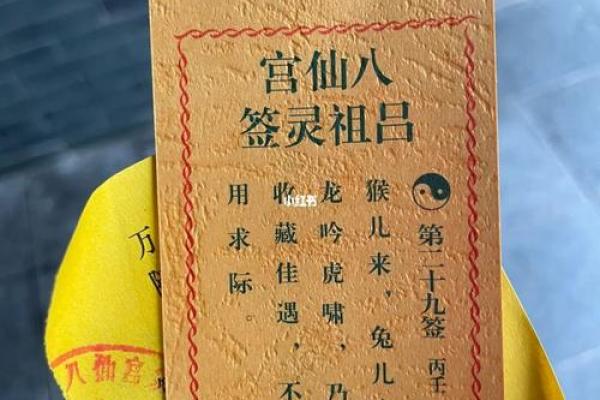 八仙宫
吕祖灵签
第二十九签 丙壬
猴儿来，兔儿
龙吟虎啸，乃
收藏佳遇，不
用求际。
小红书
万
八仙宫